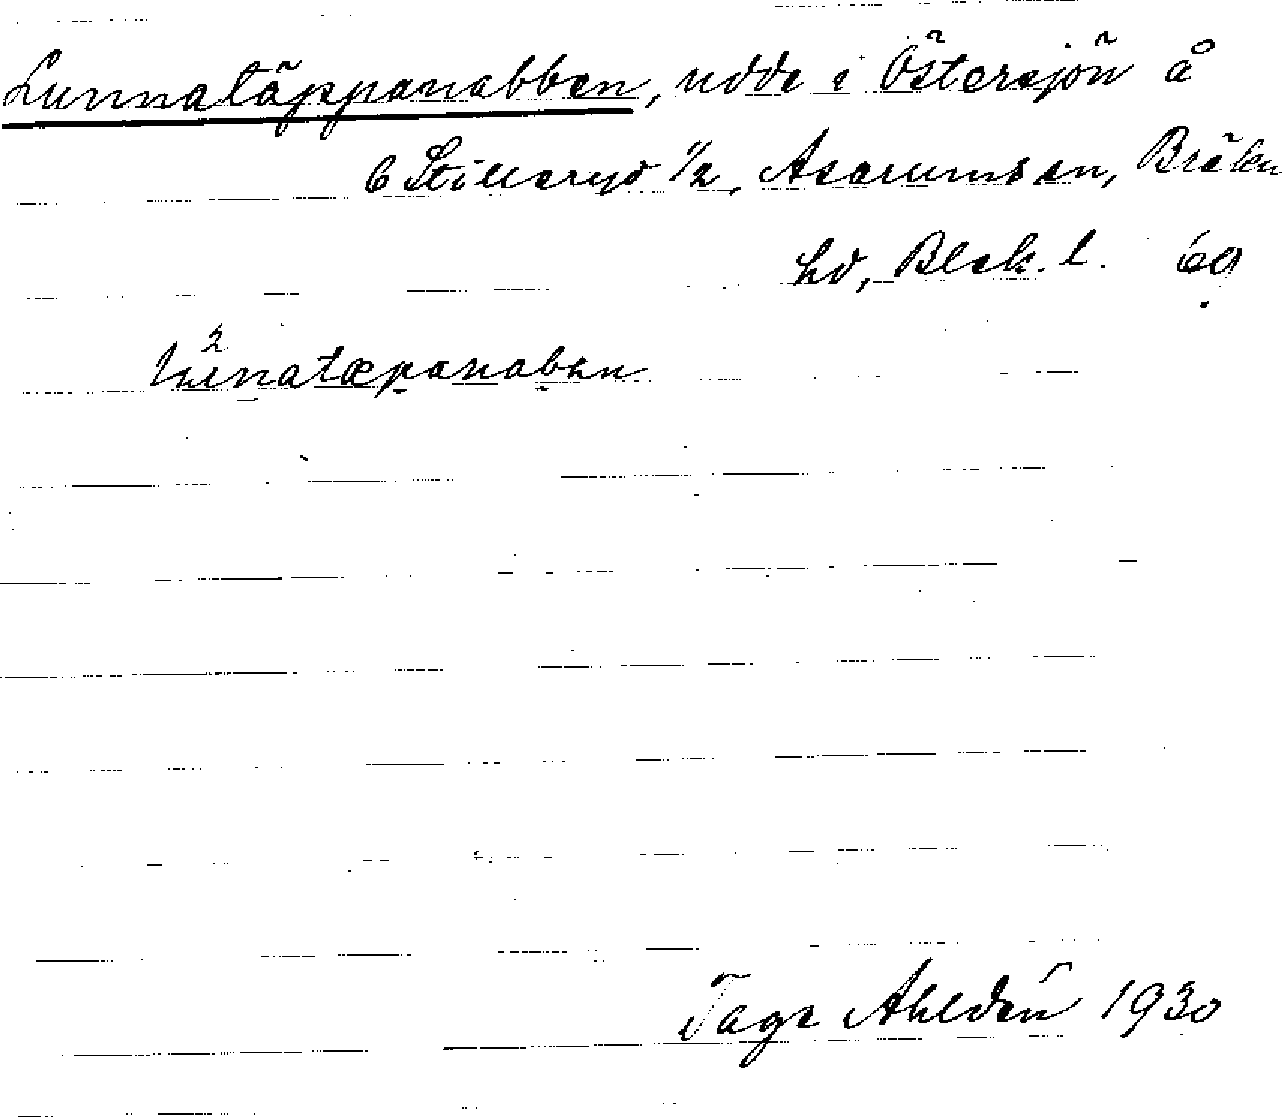 Lunnatäppanabben, udde i Östersjön å
6 Stilleryd 1/2, Asarums sn, Bräkn
hd, Blek. l. 69
Tage Ahldén 1930